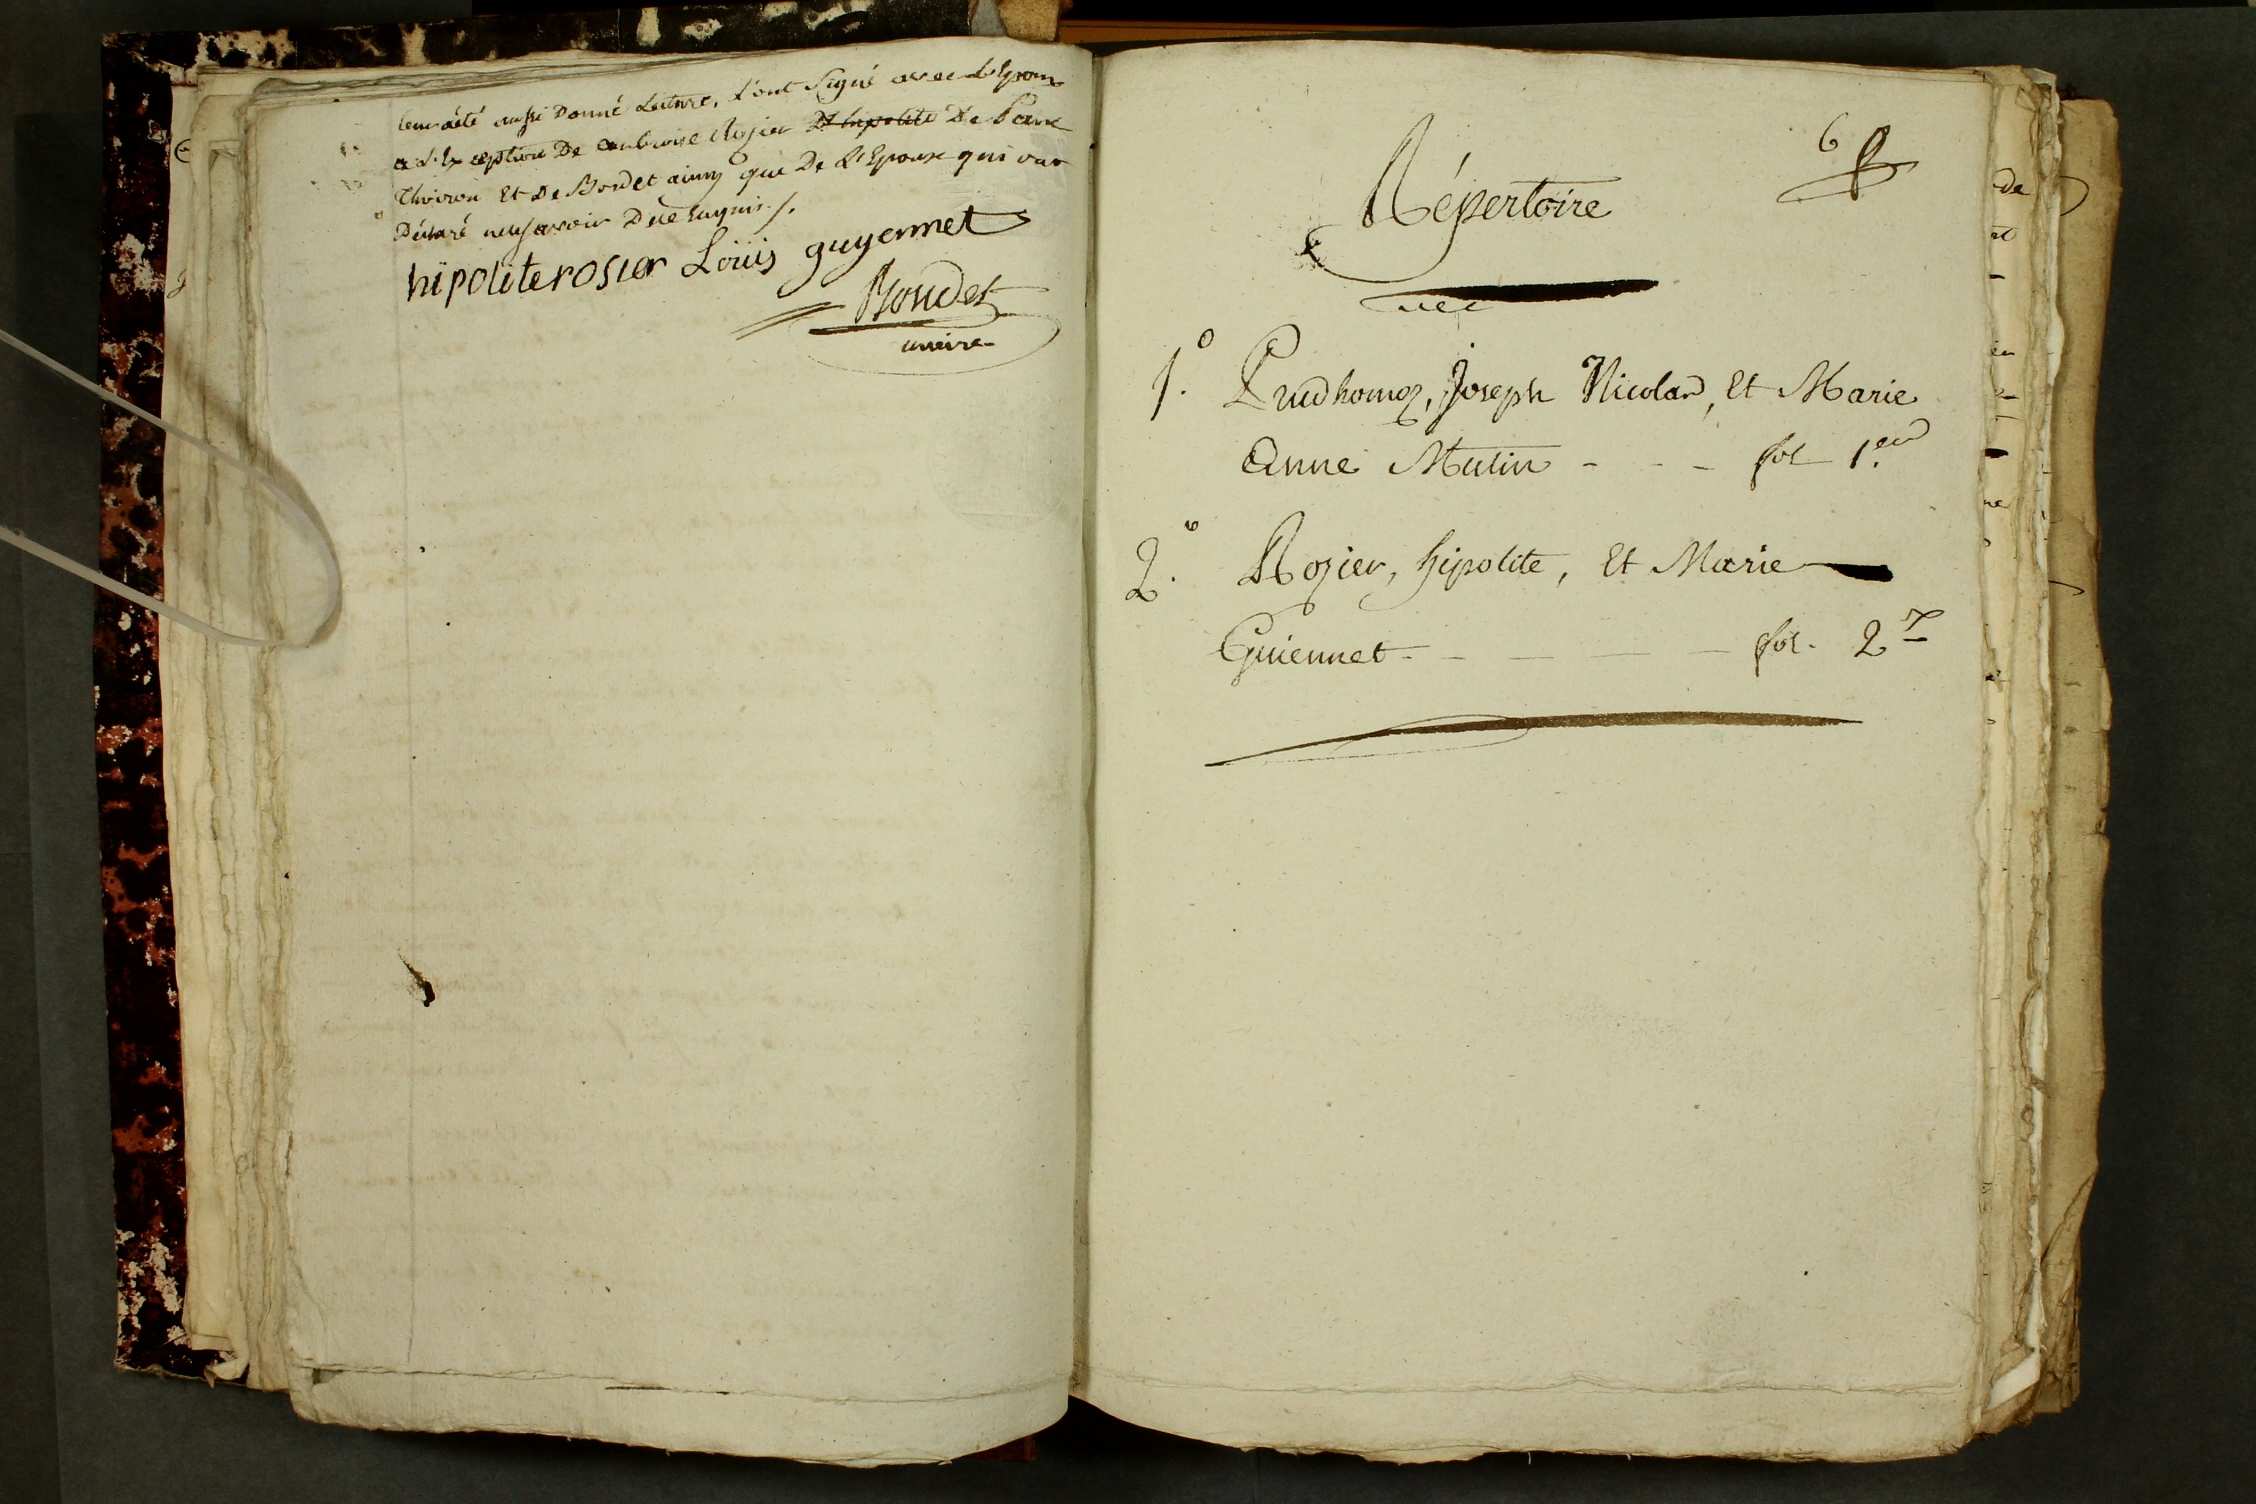 leur a été aussi Donné Lecture, L'ont Signé avec L'Epoux
a L'Exception De ambroise Rozier D'hipolite De Pierre
Thivion Et De Bordet ainsy que De L'Epouse qui ont
Déclaré ne Savoir De ce Enquis ./.
hipolite rosier Loüis guyennet
Bondet
maire
6
Répertoire
1.º Prudhomg, Joseph Nicolas, Et Marie
Anne Mutin - - - fol 1.er
2.º Rozier, hipolite, Et Marie
Guiennet - - - - - fol. 2